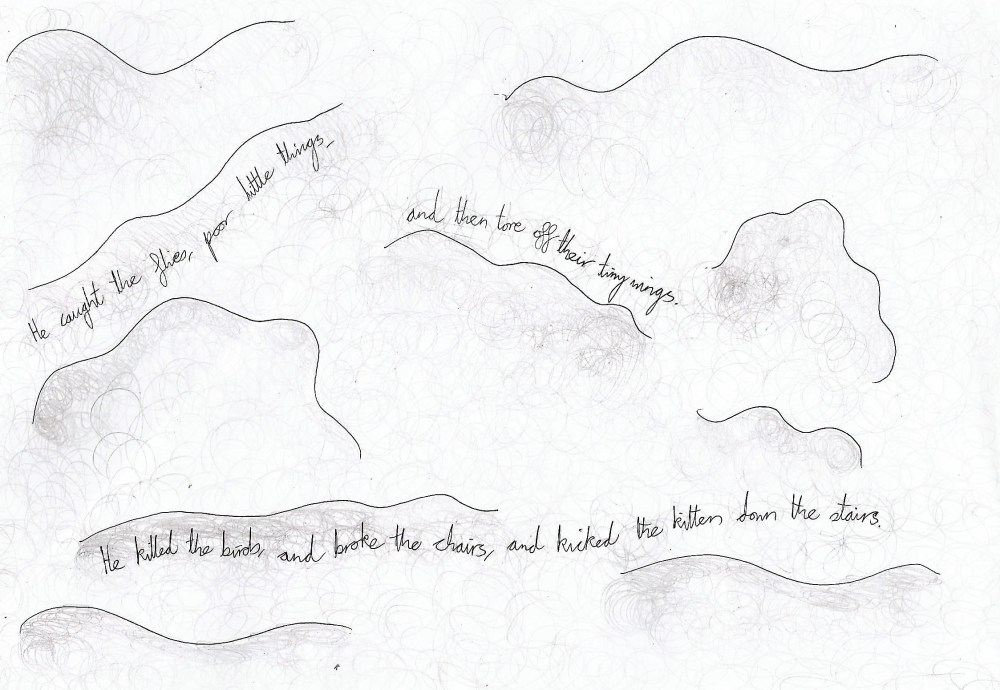 He caught the flies, poor little things,
and then tore off their tiny wings.
He killed the birds, and broke the chairs, and kicked the kitten down the stairs.